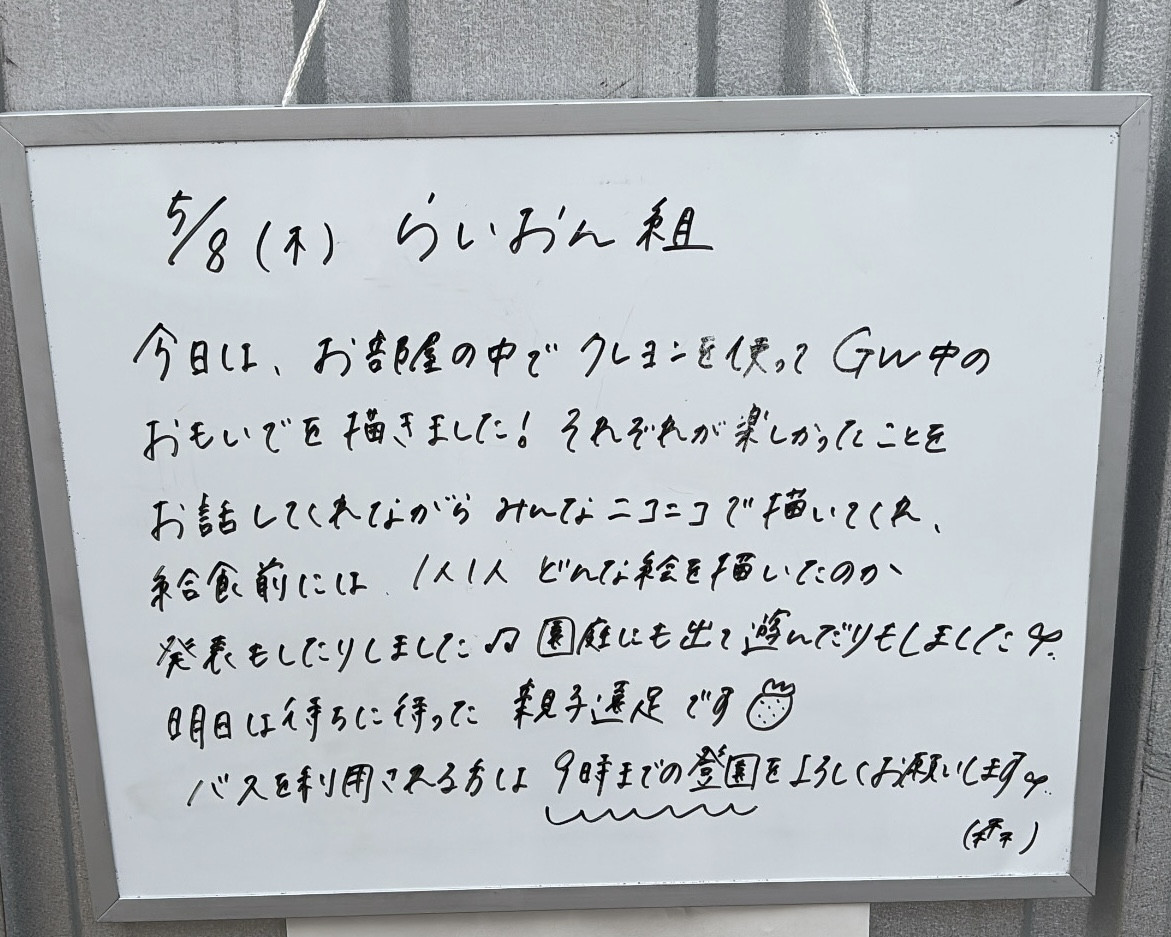 5/8(木) らいおん組
今日は、お部屋の中でクレヨンを使ってGW中の
おもいでを描きました!それぞれが楽しかったことを
お話してくれながらみんなニコニコで描いてくれ、
給食前には、1人1人どんな絵を描いたのか
発表もしたりしました♫園庭にも出て遊んだりもしました
明日は待ちに待った親子遠足です
バスを利用される方は9時までの登園をよろしくお願いします